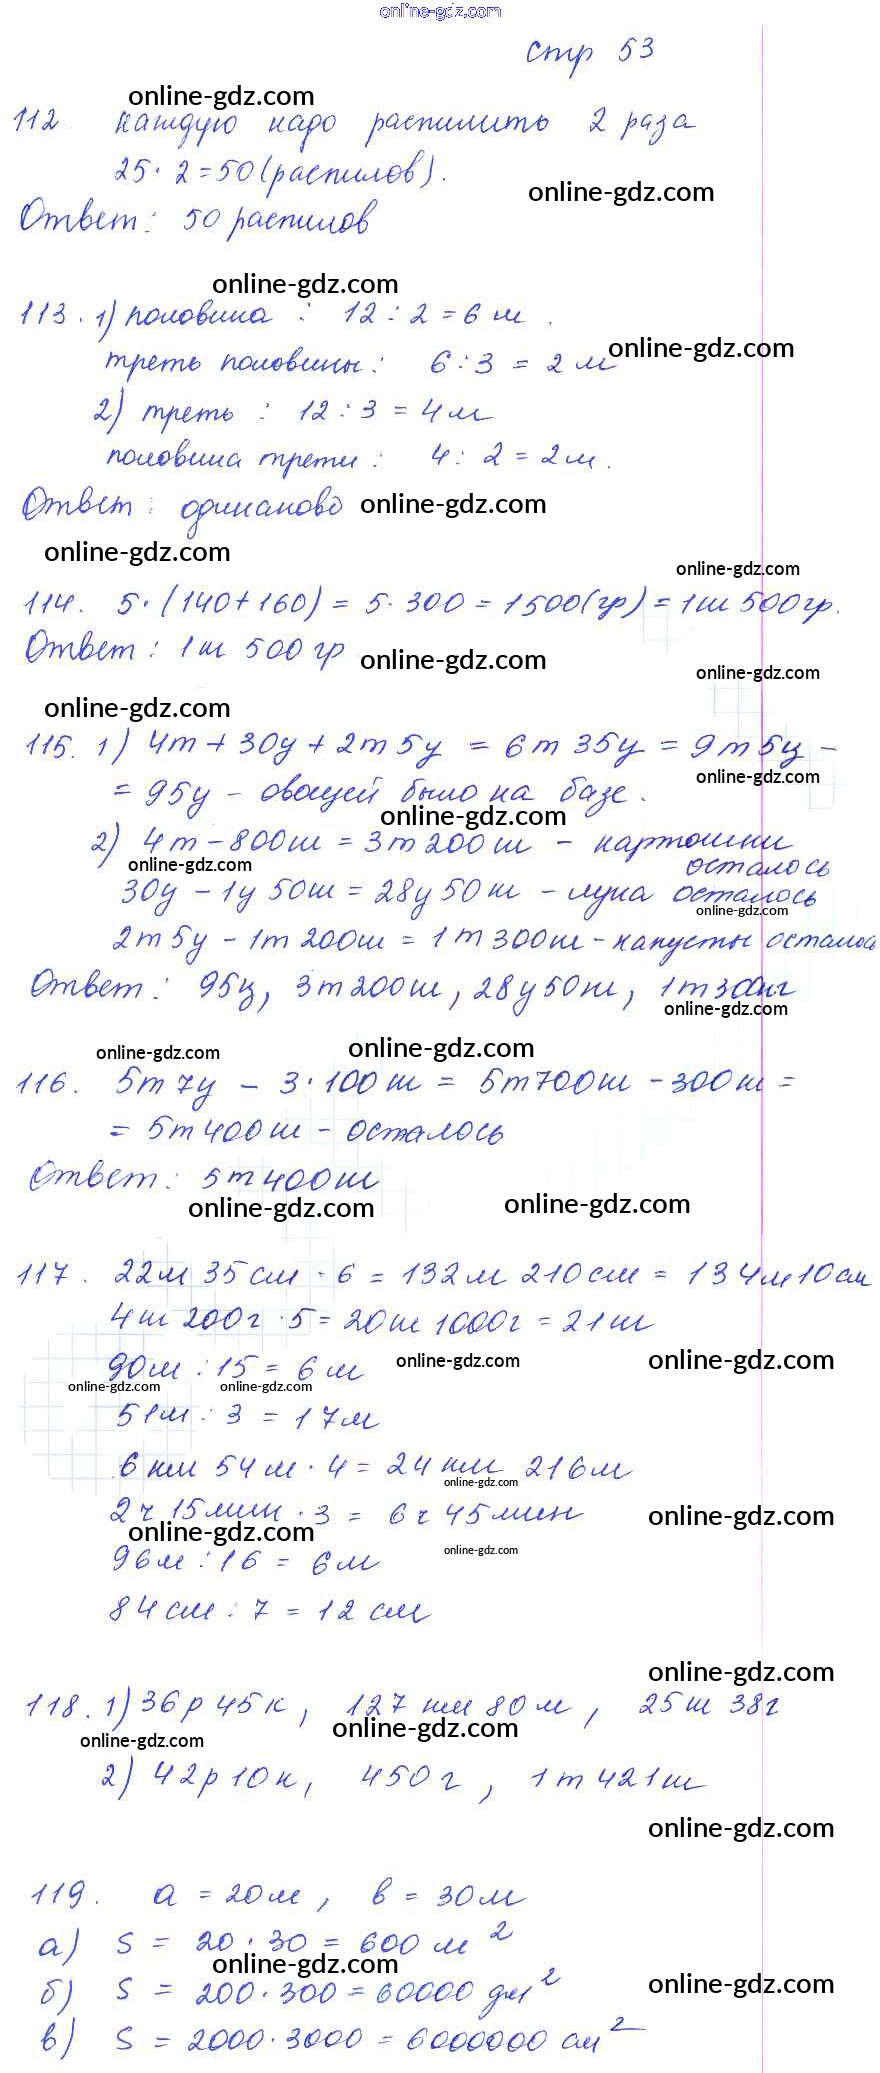 online-gdz.com
стр 53
online-gdz.com
112. каждую надо распилить 2 раза
25 · 2 = 50 (распилов).
online-gdz.com
Ответ: 50 распилов
online-gdz.com
113. 1) половина : 12 : 2 = 6 м.
online-gdz.com
треть половины: 6 : 3 = 2 м
2) треть : 12 : 3 = 4 м
половина трети : 4 : 2 = 2 м.
Ответ : одинаково
online-gdz.com
online-gdz.com
online-gdz.com
114. 5 · (140 + 160) = 5 · 300 = 1500 (гр) = 1 кг 500 гр.
Ответ : 1 кг 500 гр
online-gdz.com
online-gdz.com
online-gdz.com
115. 1) 4т + 30ц + 2т 5ц = 6т 35ц = 9т 5ц =
online-gdz.com
= 95ц – овощей было на базе.
online-gdz.com
2) 4т – 800кг = 3т 200кг – картошки
осталось
online-gdz.com
30ц – 1ц 50кг = 28ц 50кг – лука осталось
online-gdz.com
2т 5ц – 1т 200кг = 1т 300кг – капусты осталось
Ответ : 95ц, 3т 200кг, 28ц 50кг, 1т 300кг
online-gdz.com
online-gdz.com
online-gdz.com
116. 5т 7ц – 3 · 100кг = 5т 700кг – 300кг =
= 5т 400кг – осталось
Ответ : 5т 400кг
online-gdz.com
online-gdz.com
117. 22м 35см · 6 = 132м 210см = 134м 10см
4кг 200г · 5 = 20кг 1000г = 21кг
90м : 15 = 6м
online-gdz.com
online-gdz.com
online-gdz.com
online-gdz.com
51м : 3 = 17м
6 км 54 м · 4 = 24 км 216м
online-gdz.com
2ч 15мин · 3 = 6ч 45мин
online-gdz.com
online-gdz.com
online-gdz.com
96м : 16 = 6м
84см : 7 = 12 см
online-gdz.com
118. 1) 36р 45к, 127 км 80м, 25кг 38г
online-gdz.com
online-gdz.com
2) 42р 10к, 450г, 1т 421кг
online-gdz.com
119. а = 20м, в = 30м
а) S = 20 · 30 = 600 м²
online-gdz.com
online-gdz.com
б) S = 200 · 300 = 60000 дм²
в) S = 2000 · 3000 = 6000000 см²